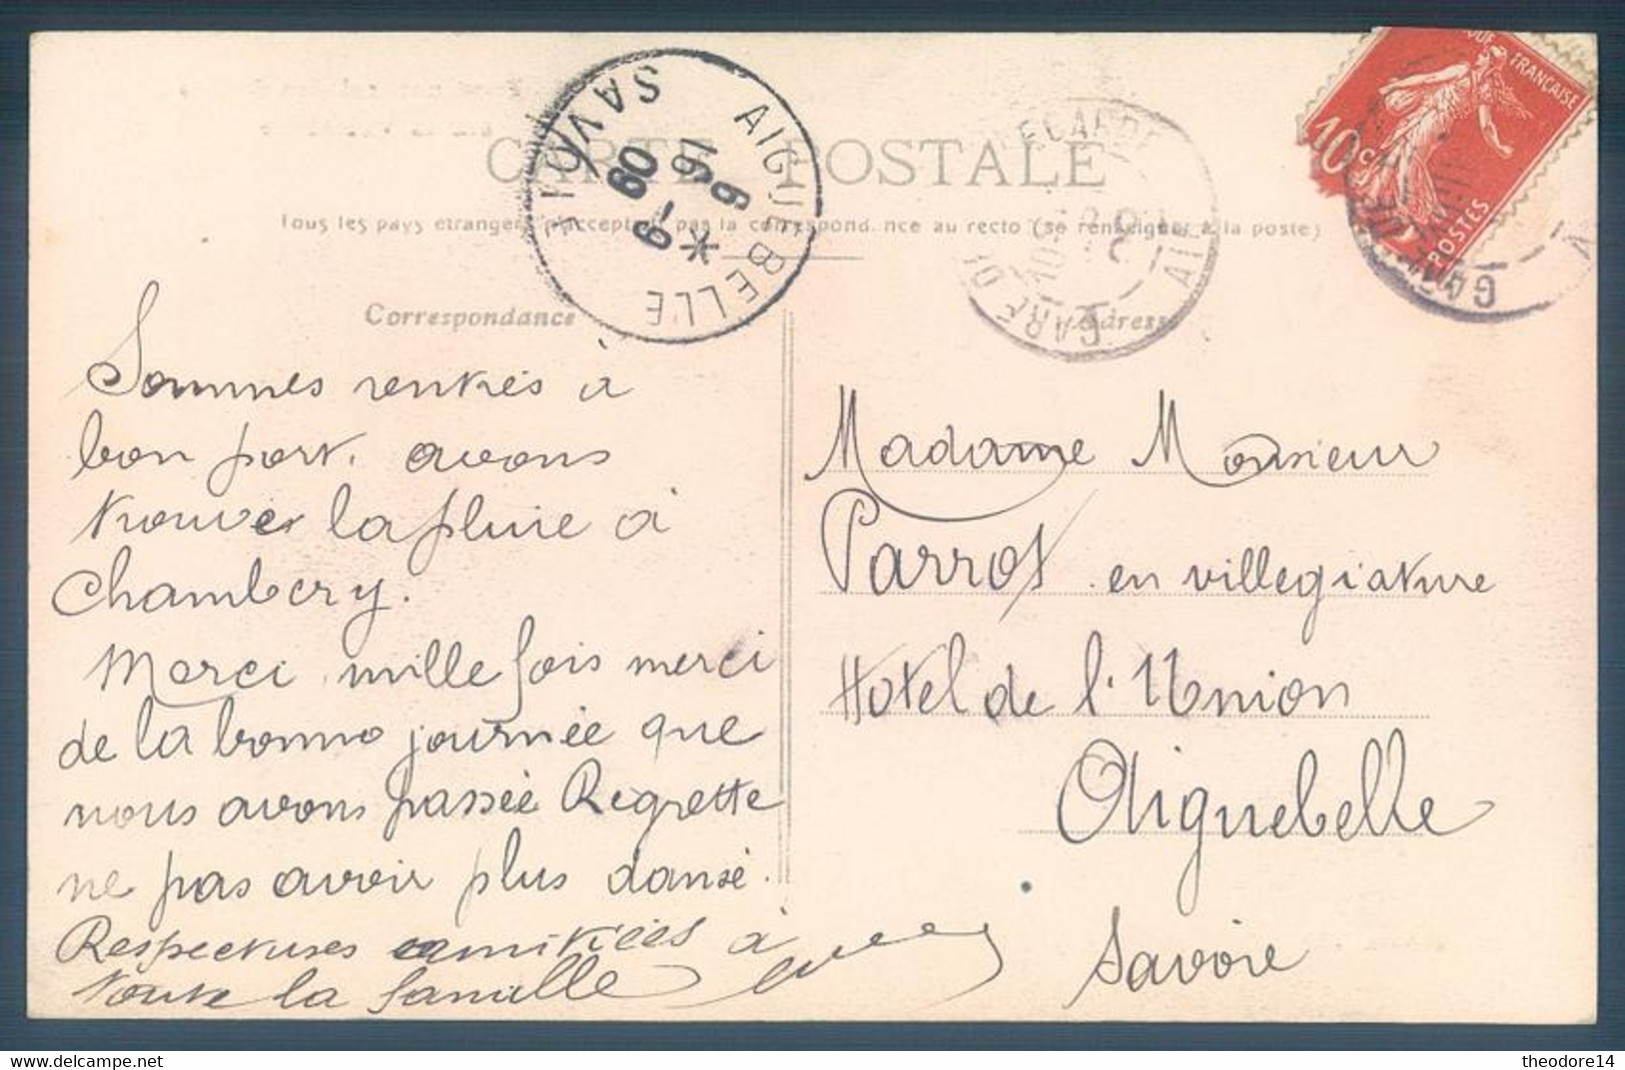 CARTE POSTALE
Tous les pays étrangers n'acceptent pas la correspondance au recto (se renseigner à la poste)
Correspondance
Sommes rentrés à
bon port. avons
trouver la pluie à
Chambery.
Merci mille fois merci
de la bonne journée que
nous avons passée Regrette
ne pas avoir plus dansé.
Respectuses amitiées à
toute la famille
Adresse
Madame Monsieur
Parrot en villegiature
Hotel de l'Union
Aiguebelle
Savoie
AIGUEBELLE
SAVOIE
16
6-9
09
GARE DE
AIN
FRANÇAISE
10c
POSTES
GARE
theodore14